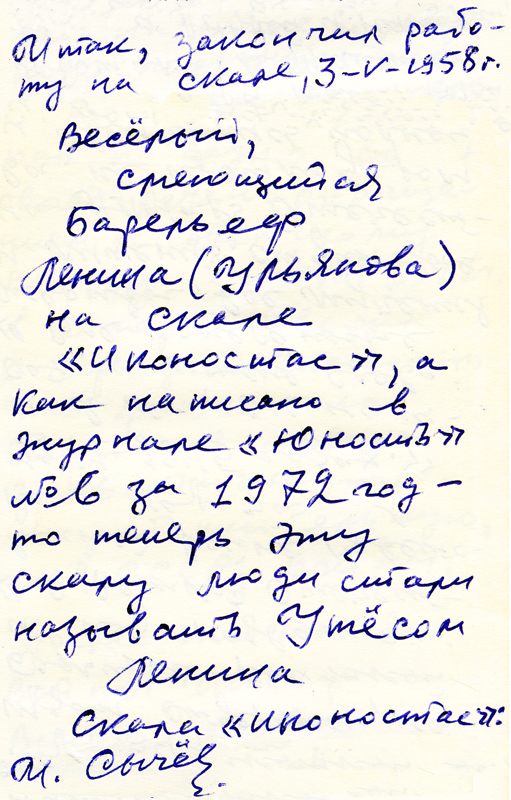 Итак, закончил рабо-
ту на скале, 3-V-1958 г.
Весёлый,
смеющийся
Барельеф
Ленина (Ульянова)
на скале
«Иконостас», а
как написано в
журнале «Юность»
№6 за 1972 год -
то теперь эту
скалу люди стали
называть Утёсом
Ленина
Скала «Иконостас»:
И. Сычёв.